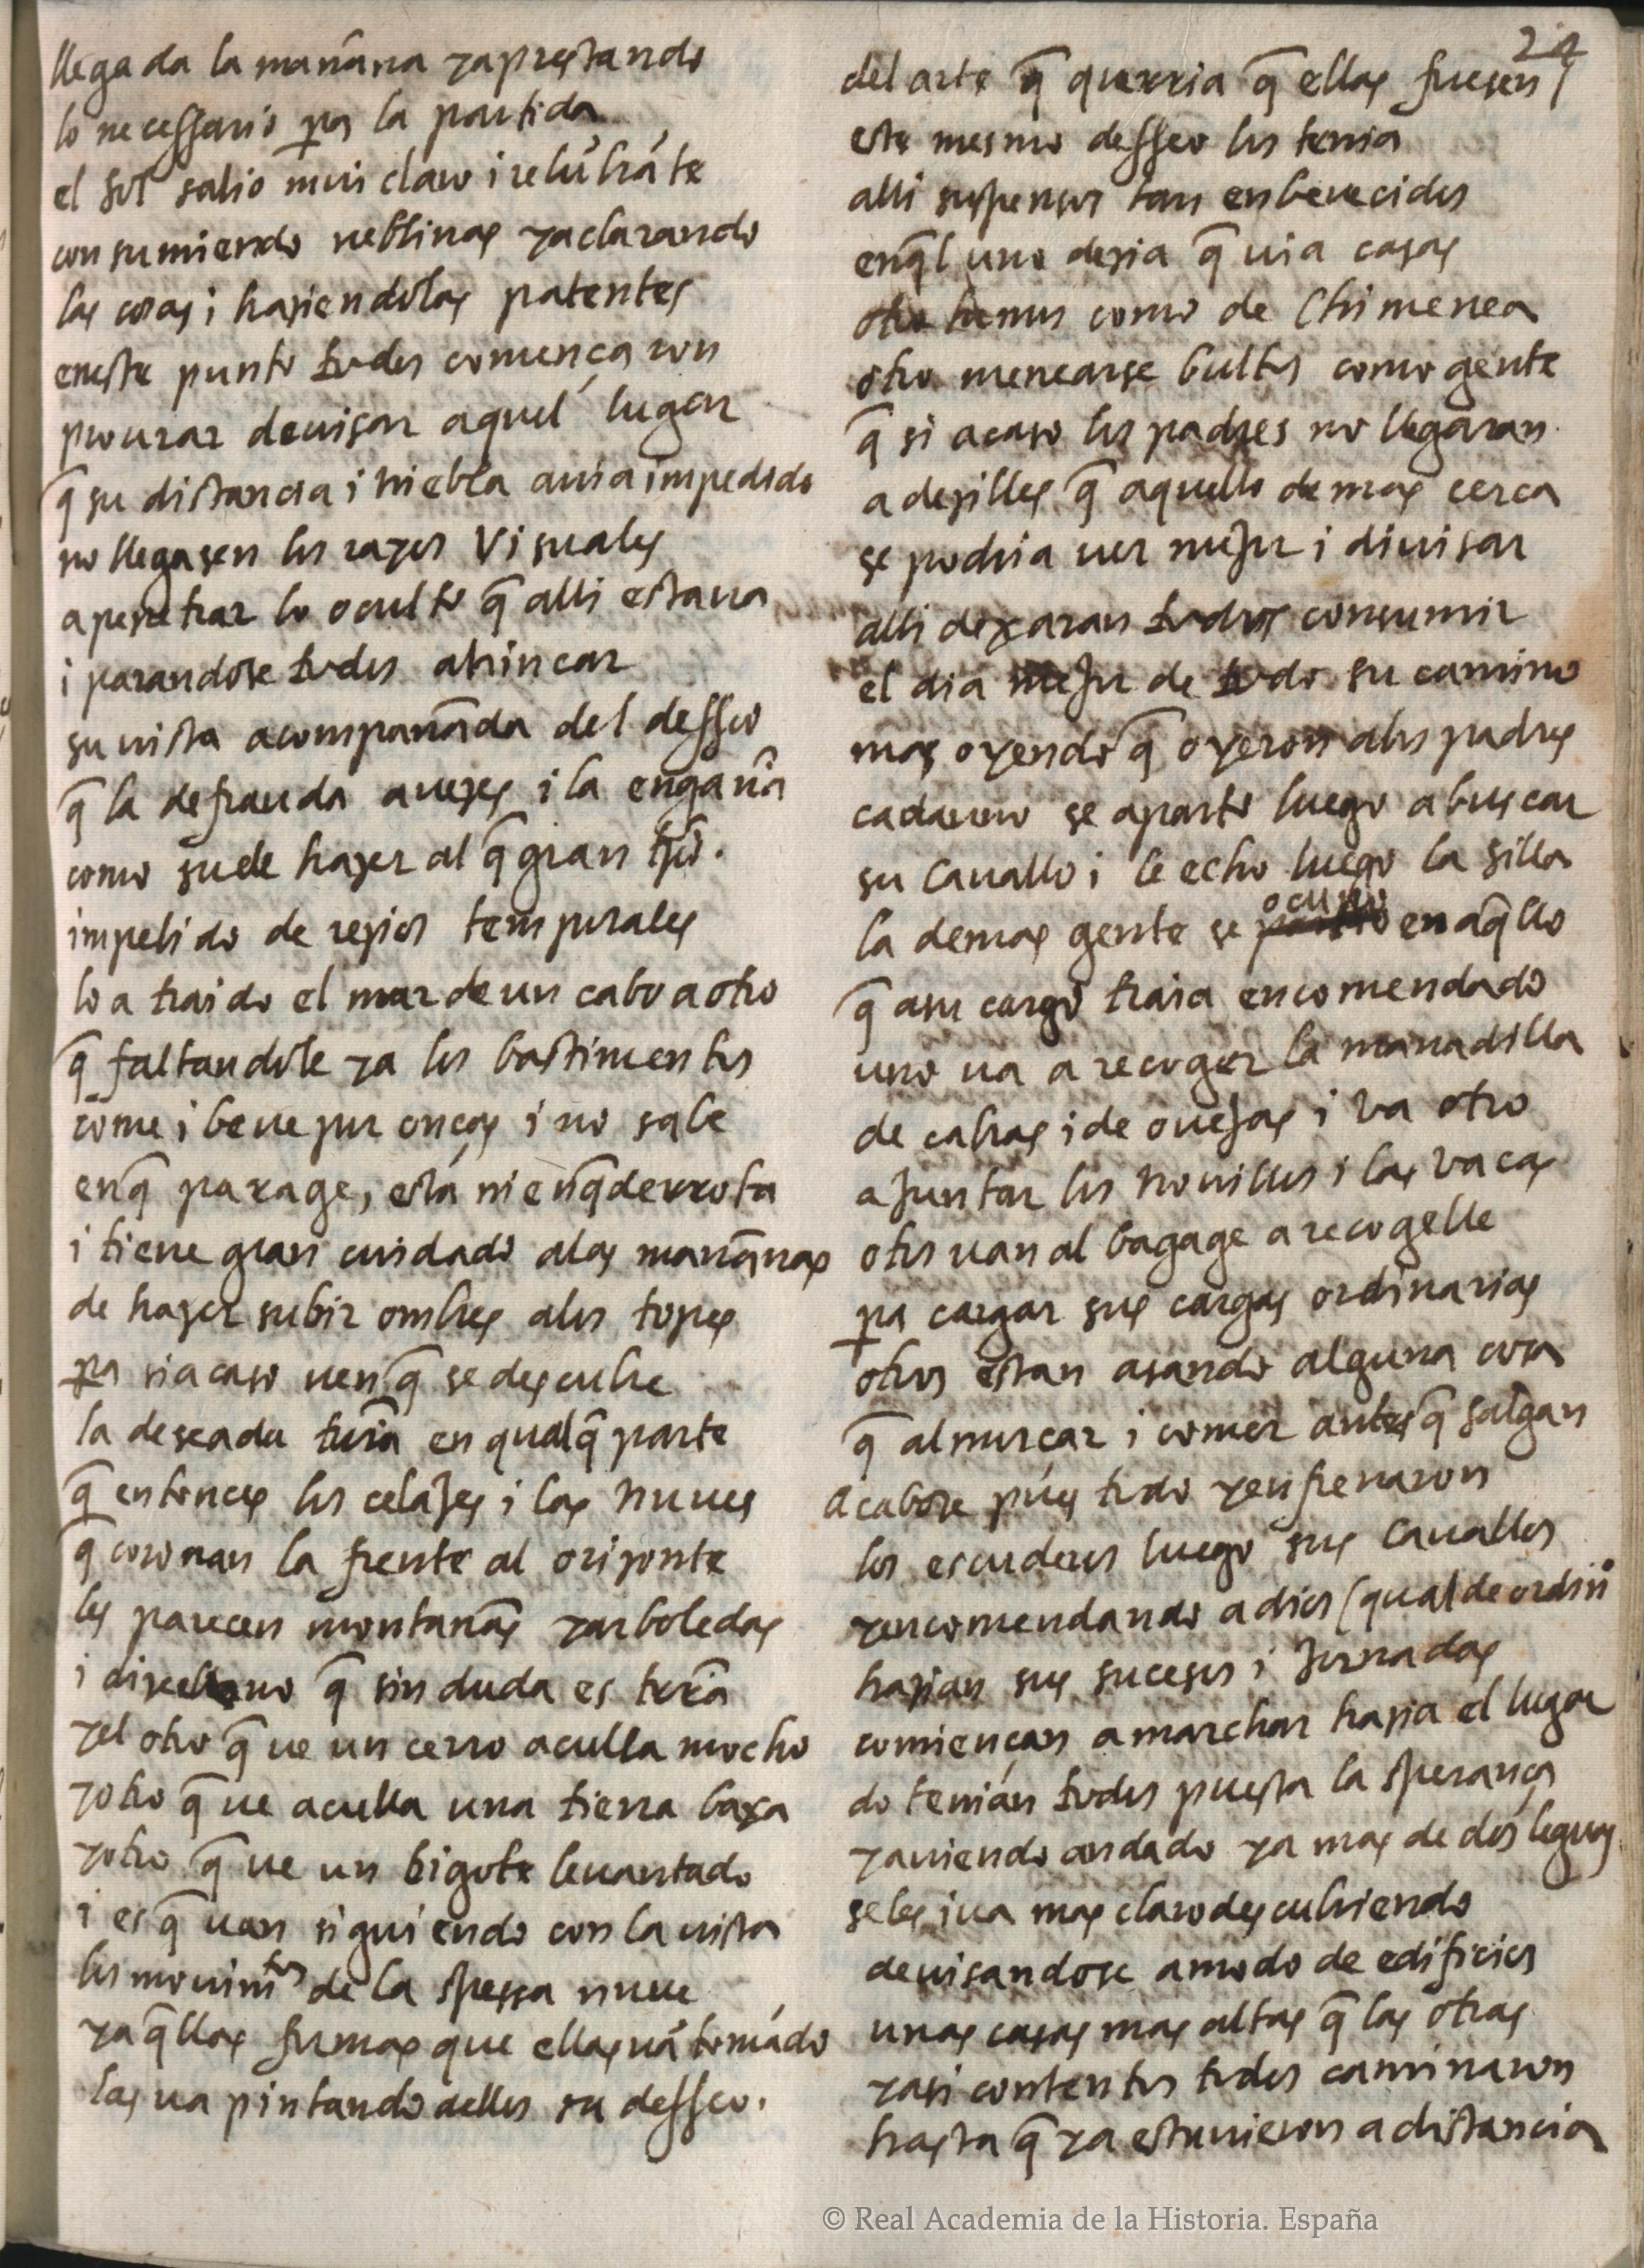 llegada la mañana yaprestando
lo necessario pa la partida
el sol salio mui claro i relũbrãte
consumiendo neblinas yaclarando
las cosas i haziendolas patentes
eneste punto todos començaron
procurar deuisar aquel lugar
q̃ su distancia i niebla auia impedido
no llegasen los rayos Visuales
apenetrar lo oculto q̃ alli estaua
i parandose todos ahincar
su uista acompañada del desseo
q̃ la defrauda auezes i la engaña
como suele hazer al q̃ gran tp̃o.
impelido de rezios temporales
lo a traido el mar de un cabo a otro
q̃ faltandole ya los bastimentos
come i beue por onças i no sabe
enq̃ parage, está ni enq̃ derrota
i tiene gran cuidado alas mañanas
de hazer subir ombres alos topes
pa siacaso uen q̃ se descubre
la deseada trr̃a en qualq̃ parte
q̃ entonces los celajes i las nuues
q̃ coronan la frente al orizonte
les parecen montañas yarboledas
i dize uno q̃ sin duda es trr̃a
yel otro q̃ ue un cerro aculla mocho
yotro q̃ ue aculla una tierra baxa
yotro q̃ ue un bigote leuantado
i es q̃ uan siguiendo con la uista
los mouimtos de la spessa nuue
yaq̃llas formas que ellas uã tomãdo
las ua pintando dellos su desseo.
24
del arte q̃ querria q̃ ellas fuesen /
este mesmo desseo los tenia
alli suspensos tan enbeuecidos
enq̃l uno dezia q̃ uia casas
otro humos como de Chimenea
otro menearse bultos como gente
q̃ si acaso los padres no llegaran
a dezilles q̃ aquello de mas cerca
se podria uer mejor i diuisar
alli dexaran todos consumir
el dia mejor de todo su camino
mas oyendo q̃ oyeron alos padres
cadauno se aparto luego abuscar
su Cauallo i le echo luego la silla
la demas gente se ocupo en aq̃llo
q̃ asu cargo traia encomendado
uno ua a recoger la manadilla
de cabras i de ouejas i va otro
ajuntar los nouillos i las vacas
otros uan al bagage a recogelle
pa cargar sus cargas ordinarias
otros estan asando alguna cosa
q̃ almorçar i comer antes q̃ salgan
Acabose pues todo yenfrenaron
los escuderos luego sus Cauallos
yencomendando a dios (qual de ordinº
hazian sus sucesos i Jornadas
comiençan amarchar hazia el lugar
do tenian todos puesta la sperança
yauiendo andado ya mas de dos leguas
seles iua mas claro descubriendo
deuisandose amodo de edificios
unas casas mas altas q̃ las otras
yasi contentos todos caminaron
hasta q̃ ya estuuieron adistancia
© Real Academia de la Historia. España